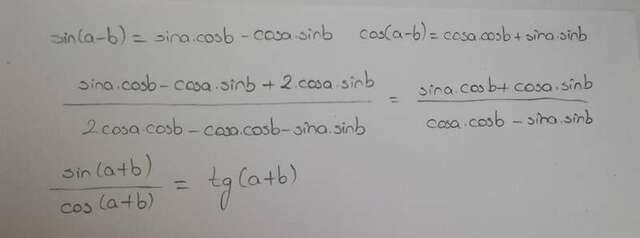 sin(a-b) = sina.cosb - cosa.sinb cos(a-b) = cosa.cosb + sina.sinb
sina.cosb - cosa.sinb + 2.cosa.sinb / 2cosa.cosb - cosa.cosb - sina.sinb = sina.cosb + cosa.sinb / cosa.cosb - sina.sinb
sin(a+b) / cos(a+b) = tg(a+b)